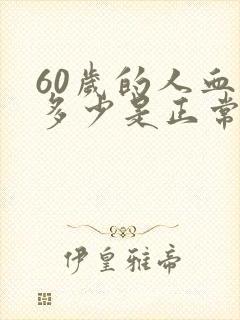 60歲的人血
多少是正常
伊皇雅帝